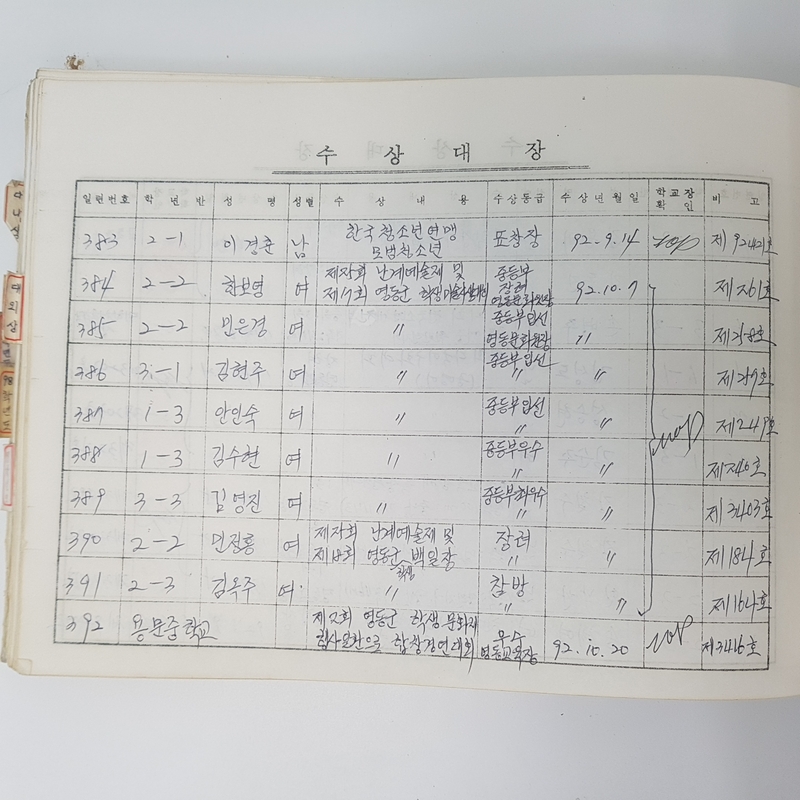 수 상 대 장
일련번호 학 년 반 성 명 성별 수 상 내 용 수상등급 수 상 년 월 일 학교장 확 인 비 고
383 2-1 이경춘 남 한국청소년연맹 표창장 92. 9. 14 제92421호
모범청소년
384 2-2 한보영 여 난계예술제 및 중등부 92. 10. 7
제17회 영동군 장려
385 2-2 민은경 여 〃 중등부입선 〃 제258호
영동문화원장
386 3-1 김현주 여 〃 중등부입선 〃 제257호
〃
387 1-3 안인숙 여 〃 중등부입선 〃 제249호
〃
388 1-3 김수현 여 〃 중등부우수 〃 제240호
〃
389 3-3 김영진 여 〃 중등부최우수 〃 제3403호
〃
390 2-2 여 난계예술제 및 장려 〃 제184호
제18회 영동군 학생 백일장 〃
391 2-3 김옥주 여 〃 참방 〃 제164호
〃
392 용문중학교 제2회 영동군 학생 문화제 우수 92. 10. 20 제3415호
행사일환으로 합창경연대회 영동교육장